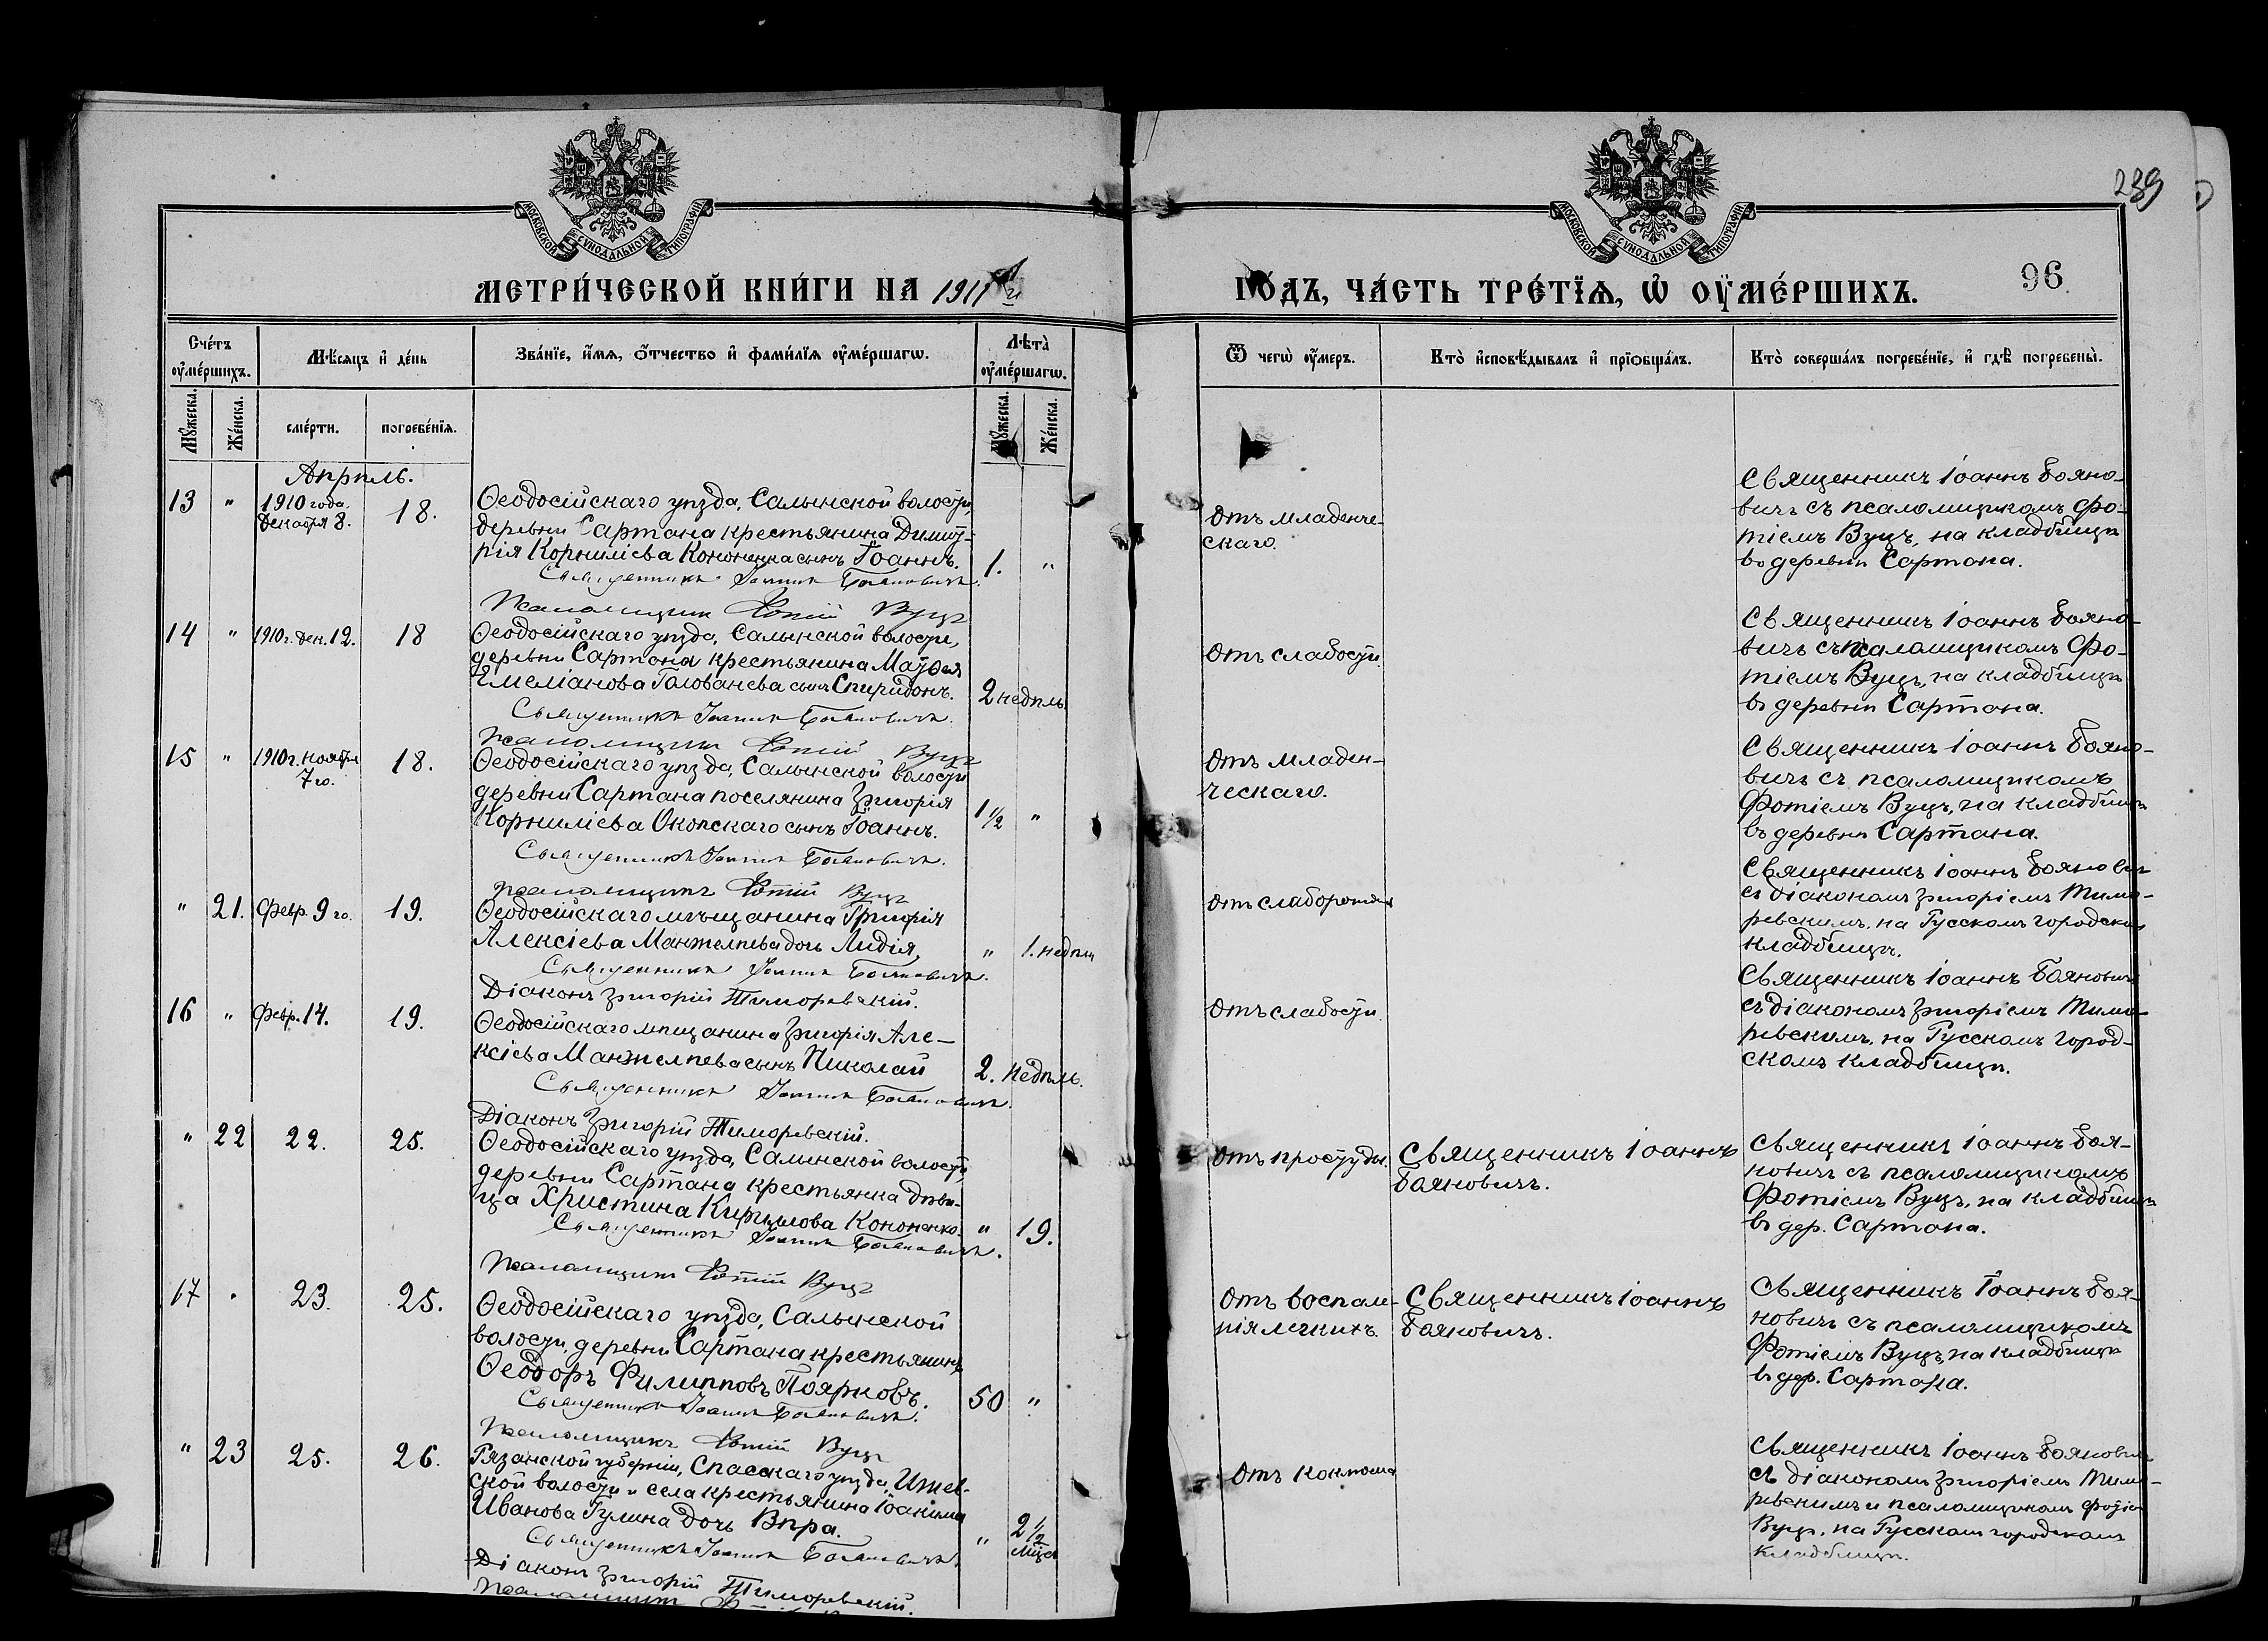 239
МОСКОВСКОЙ СѴНОДАЛЬНОЙ ТИПОГРАФІИ
МОСКОВСКОЙ СѴНОДАЛЬНОЙ ТИПОГРАФІИ
МЕТРИ́ЧЕСКОЙ КНИ́ГИ НА 1911й
ГО́ДЪ, ЧА́СТЬ ТРЕ́ТЇѦ, Ѡ҆ ОУ҆МЕ́РШИХЪ.
96
Сче́тъ оу҆ме́ршихъ.
Мꙋ́жеска.
Же́нска.
Мѣ́сѧцъ и҆ де́нь
сме́рти.
погребе́нїѧ.
Зва́нїе, и҆́мѧ, ѻ҆́тчество и҆ фами́лїѧ оу҆ме́ршагѡ.
Лѣта̀ оу҆ме́ршагѡ.
Мꙋ́жеска.
Же́нска.
Ѿ чегѡ̀ оу҆́меръ.
Кто̀ и҆сповѣ́дывалъ и҆ прїѡбща́лъ.
Кто̀ соверша́лъ погребе́нїе, и҆ гдѣ̀ погребены̀.
Апрѣль.
13 " 1910 года.
Декабря 8.
18.
Ѳеодосійскаго уѣзда, Салынской волости,
деревни Сартана крестьянина Димит-
рія Корниліева Кононенка сынъ Іоаннъ.
1. "
Священникъ Іоаннъ Бояновичъ.
Псаломщикъ Фотій Вуцъ
Отъ младенче-
скаго.
Священникъ Іоаннъ Бояно-
вичъ съ псаломщикомъ Фо-
тіемъ Вуцъ, на кладбищѣ
въ деревни Сартана.
14 " 1910 г. Дек. 12. 18
Ѳеодосійскаго уѣзда, Салынской волости,
деревни Сартана крестьянина Матѳея
Емеліанова Голованева сынъ Спиридонъ.
2 недѣль.
Священникъ Іоаннъ Бояновичъ.
Псаломщикъ Фотій Вуцъ
Отъ слабости.
Священникъ Іоаннъ Бояно-
вичъ съ псаломщикомъ Фо-
тіемъ Вуцъ, на кладбищѣ
въ деревни Сартана.
15 " 1910 г. Ноября
7го.
18.
Ѳеодосійскаго уѣзда, Салынской волости
деревни Сартана поселянина Григорія
Корниліева Окопскаго сынъ Іоаннъ.
1 1/2 "
Священникъ Іоаннъ Бояновичъ.
Псаломщикъ Фотій Вуцъ
Отъ младен-
ческаго.
Священникъ Іоаннъ Бояно-
вичъ съ псаломщикомъ
Фотіемъ Вуцъ, на кладбищѣ
въ деревни Сартана.
" 21. Февр. 9го. 19.
Ѳеодосійскаго мѣщанина Григорія
Алексіева Манжелѣева дочь Лидія,
" 1. недѣли
Священникъ Іоаннъ Бояновичъ.
Діаконъ Григорій Тиморевскій.
Отъ слаборожден
Священникъ Іоаннъ Бояновичъ
съ діакономъ Григоріемъ Тимо-
ревскимъ, на Русскомъ городском
кладбищѣ.
16 " Февр. 14. 19.
Ѳеодосійскаго мѣщанина Григорія Але-
ксіева Манжелѣева сынъ Николай
2. недѣль.
Священникъ Іоаннъ Бояновичъ.
Діаконъ Григорій Тиморевскій.
Отъ слабости.
Священникъ Іоаннъ Бояновичъ
съ діакономъ Григоріемъ Тимо-
ревскимъ, на Русскомъ город-
скомъ кладбищѣ.
" 22 22. 25.
Ѳеодосійскаго уѣзда, Салынской волости,
деревни Сартана крестьянка дѣви-
ца Христина Кириллова Кононенко.
" 19.
Священникъ Іоаннъ Бояновичъ.
Псаломщикъ Фотій Вуцъ
Отъ простуды.
Священникъ Іоаннъ
Бояновичъ.
Священникъ Іоаннъ Боя-
новичъ съ псаломщикомъ
Фотіемъ Вуцъ, на кладбищѣ
въ дер. Сартана.
17 " 23. 25.
Ѳеодосійскаго уѣзда, Салынской
волости, деревни Сартана крестьянинъ
Ѳеодоръ Филипповъ Поярковъ.
50 "
Священникъ Іоаннъ Бояновичъ.
Псаломщикъ Фотій Вуцъ
Отъ воспале-
нія легкихъ.
Священникъ Іоаннъ
Бояновичъ.
Священникъ Іоаннъ Боя-
новичъ съ псаломщикомъ
Фотіемъ Вуцъ, на кладбищѣ
въ дер. Сартана.
" 23 25. 26.
Рязанской губерніи, Спасскаго уѣзда, Ижев-
ской волости и села крестьянина Іоакима
Иванова Гулина дочь Вѣра.
" 2 1/2 мѣсяц
Священникъ Іоаннъ Бояновичъ.
Діаконъ Григорій Тиморевскій.
Псаломщикъ
Отъ коклюша
Священникъ Іоаннъ Бояновичъ
съ діакономъ Григоріемъ Тимо-
ревскимъ и псаломщикомъ Фотіем
Вуцъ, на Русскомъ городскомъ
кладбищѣ.